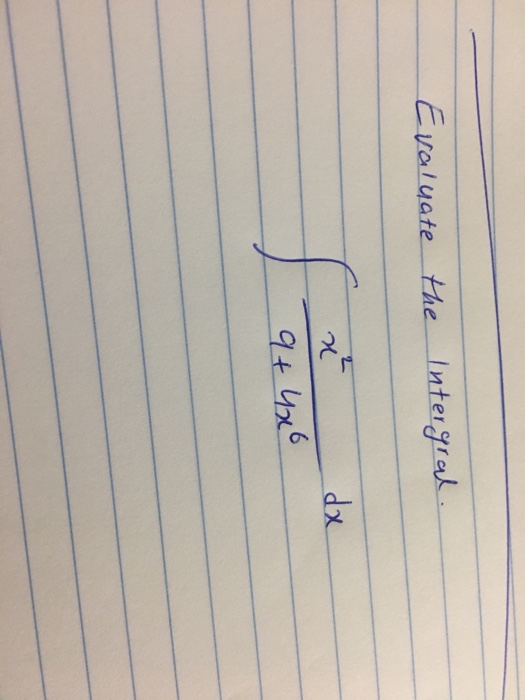 Evaluate the Intergral.
∫ x²/(9+4x⁶) dx